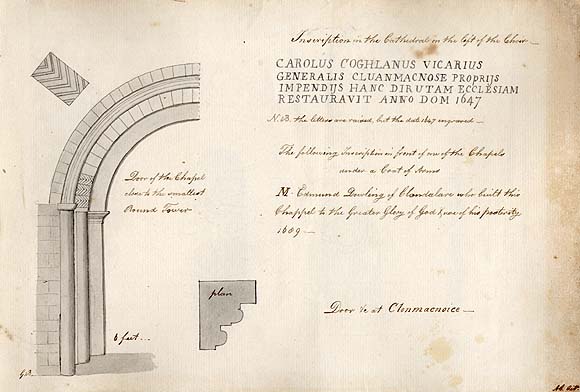 Inscription in the Cathedral in the left of the Choir —
CAROLUS COGHLANUS VICARIUS
GENERALIS CLUANMACNOSE PROPRIJS
IMPENDIJS HANC DIRUTAM ECCLESIAM
RESTAURAVIT ANNO DOM 1647
N.B. the letters are raised, but the date 1647 engraved —
The following Inscription in front of one of the Chapels
under a Coat of Arms
M. Edmund Dowling of Clondalare who built this
Chappel to the Greater Glory of God & use of his posterity
1689 —
Door of the Chapel
close to the smallest
Round Tower
plan
6 feet...
Door &c at Clonmacnoice —